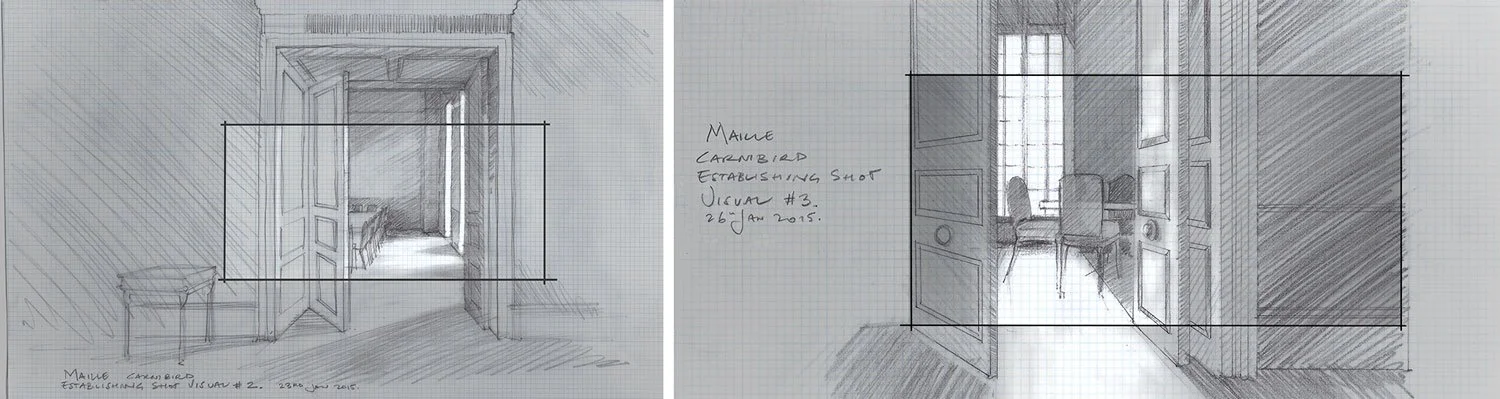 MAILLE CARNIBIRD
ESTABLISHING SHOT VISUAL #2. 23RD JAN 2015.
MAILLE
CARNIBIRD
ESTABLISHING SHOT
VISUAL #3.
26TH JAN 2015.